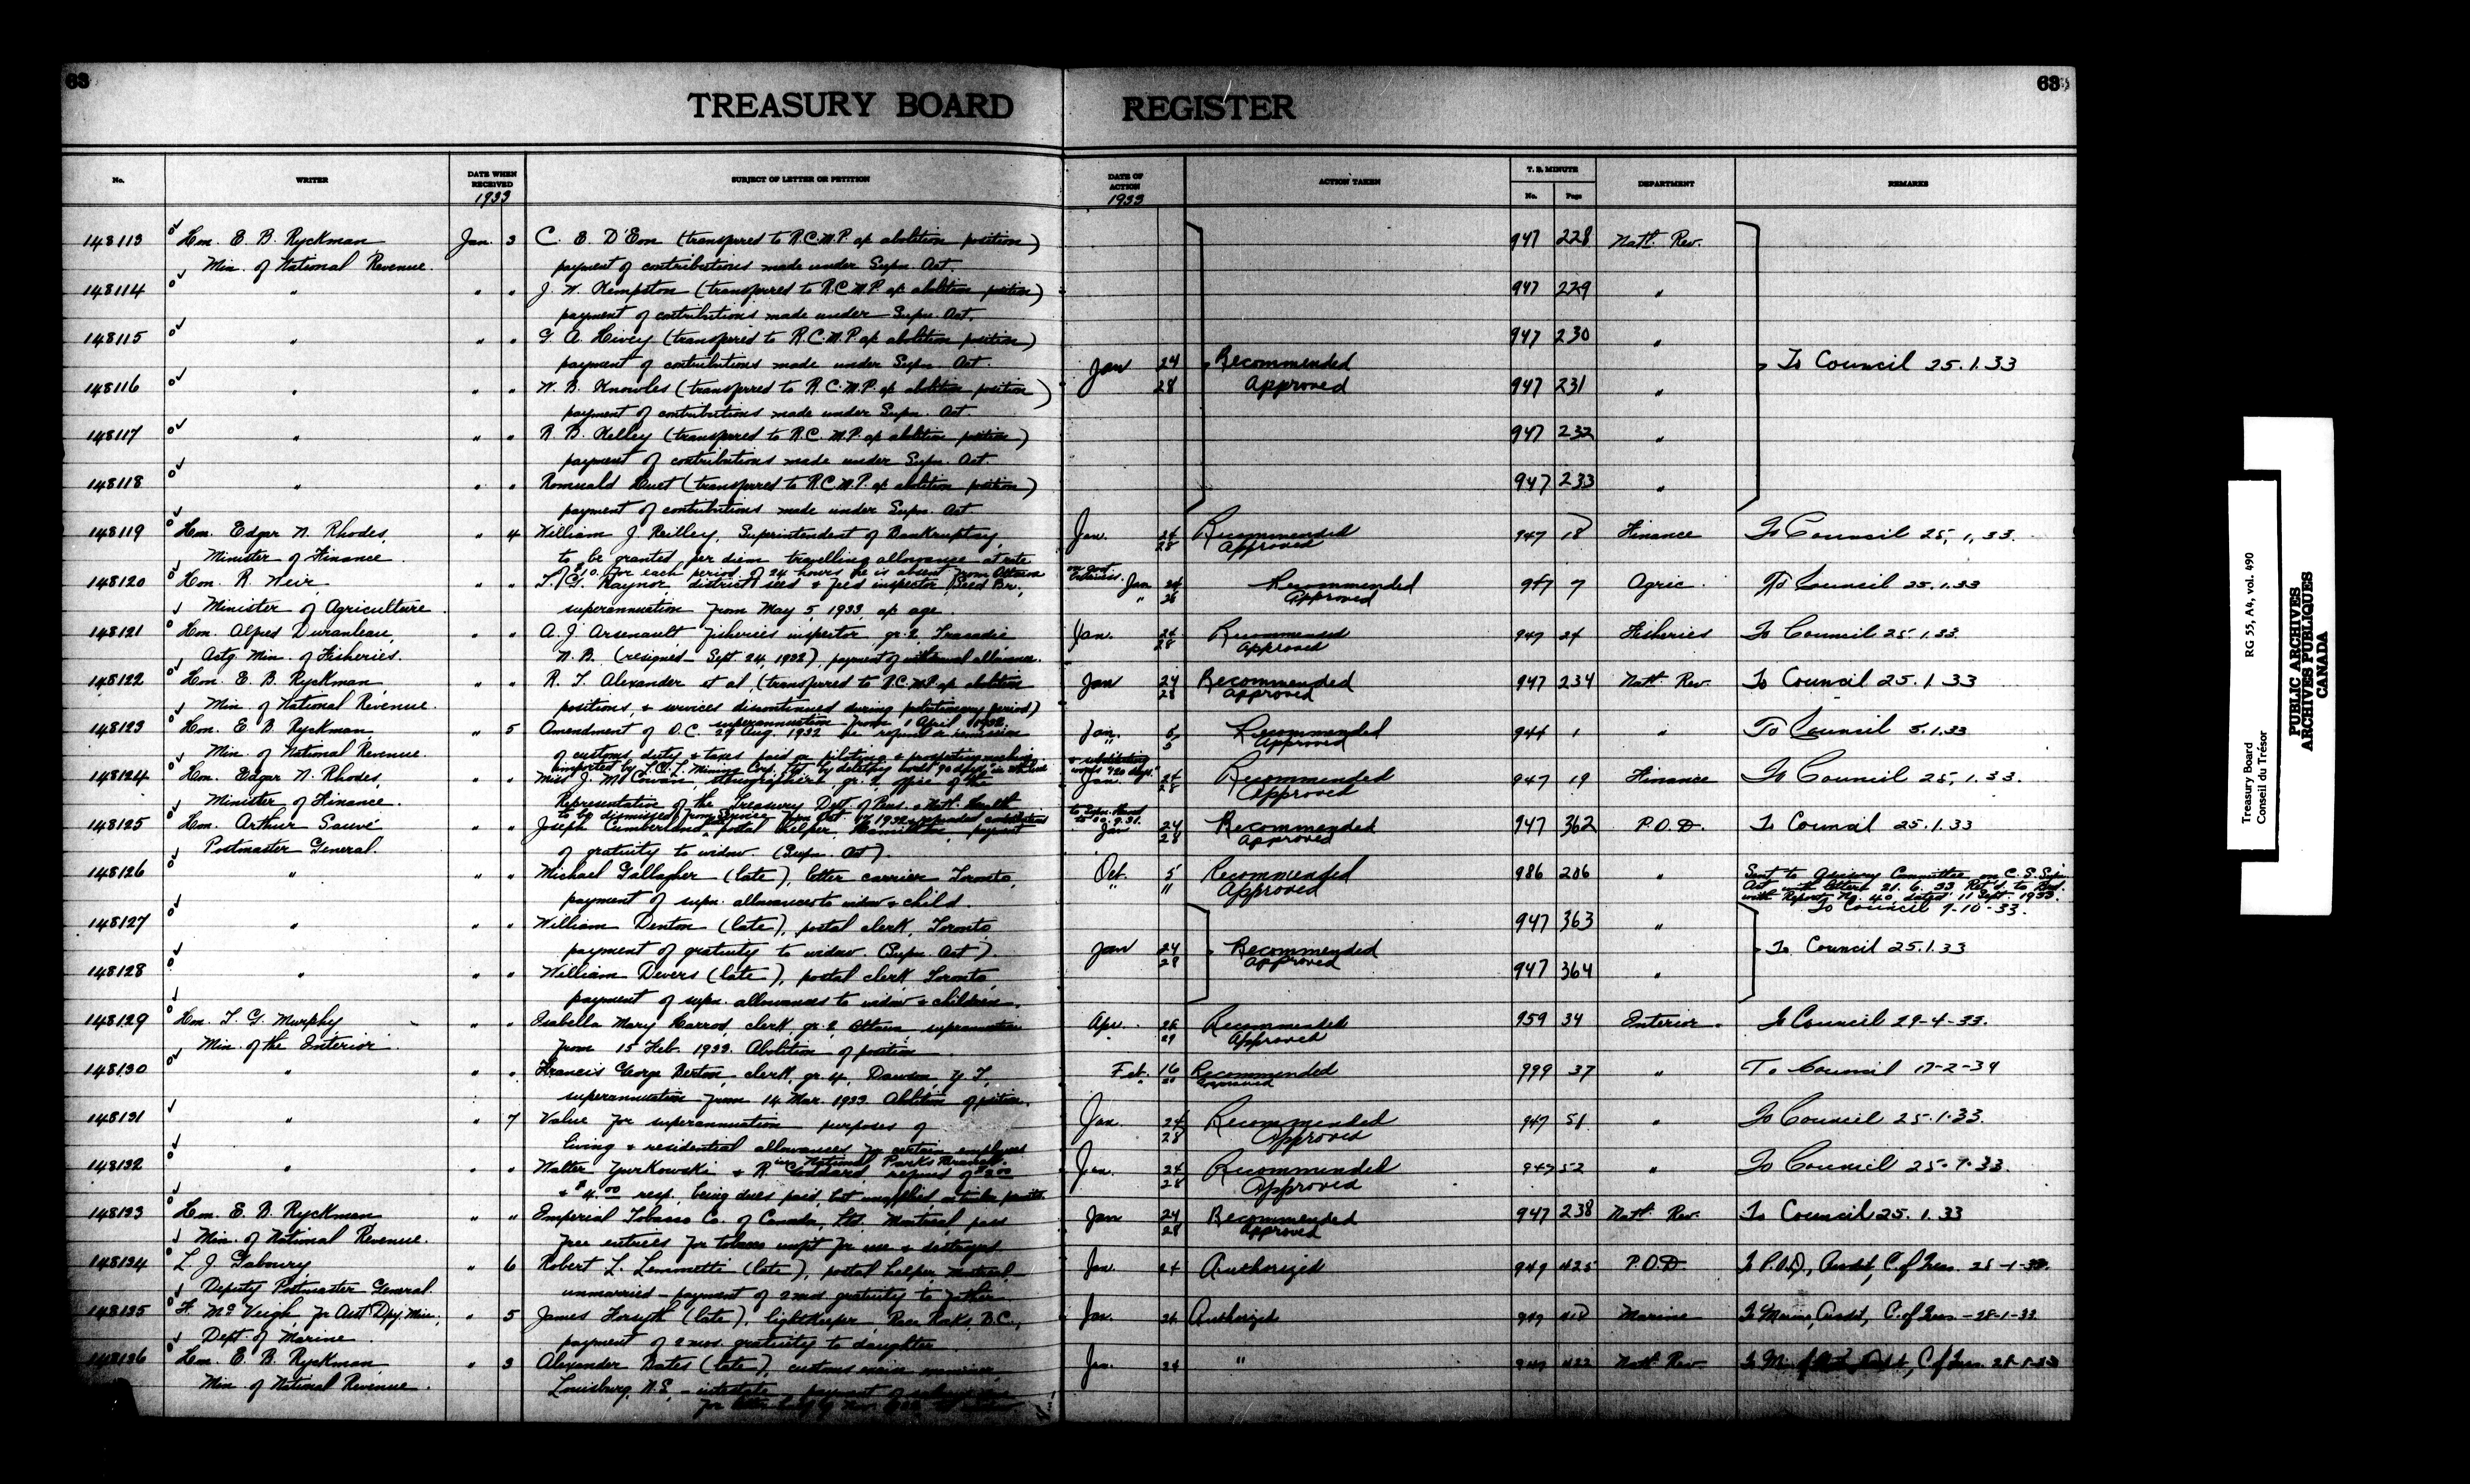 63
63
TREASURY BOARD REGISTER
No. WRITER DATE WHEN RECEIVED 1933 SUBJECT OF LETTER OR PETITION DATE OF ACTION 1933 ACTION TAKEN T. B. MINUTE No. Page DEPARTMENT REMARKS
148113 Hon. E. B. Ryckman Jan. 3 C. E. D'Eon (transferred to R.C.M.P. a/c abolition position) 947 228 Natl. Rev.
Min. of National Revenue. payment of contributions made under Supn. Act.
148114 " " " J. W. Kempston (transferred to R.C.M.P. a/c abolition position) 947 229 "
payment of contributions made under Supn. Act.
148115 " " " G. A. Livey (transferred to R.C.M.P. a/c abolition position) 947 230 "
payment of contributions made under Supn. Act. Jan 24 Recommended To Council 25.1.33
148116 " " " W. B. Knowles (transferred to R.C.M.P. a/c abolition position) 28 Approved 947 231 "
payment of contributions made under Supn. Act.
148117 " " " R. B. Kelley (transferred to R.C.M.P. a/c abolition position) 947 232 "
payment of contributions made under Supn. Act.
148118 " " " Romuald Huet (transferred to R.C.M.P. a/c abolition position) 947 233 "
payment of contributions made under Supn. Act.
148119 Hon. Edgar N. Rhodes, " 4 William J. Reilley, Superintendent of Bankruptcy, Jan. 24 Recommended 947 18 Finance To Council 25,1,33.
Minister of Finance to be granted per diem travelling allowance at rate 28 Approved
of $10. for each period of 24 hours he is absent from Ottawa on Govt business.
148120 Hon. R. Weir, " " T. G. Raynor, district seed & feed inspector, Seed Br., Jan 24 Recommended 947 7 Agric. To Council 25.1.33
Minister of Agriculture superannuation from May 5, 1933, a/c age. " 28 Approved
148121 Hon. Alfred Duranleau, " " A. J. Arsenault fisheries inspector gr. 2, Tracadie Jan. 24 Recommended 947 24 Fisheries To Council 25.1.33.
Actg. Min. of Fisheries. N. B. (resigned Sept. 24, 1932), payment of withdrawal allowance. 28 Approved
148122 Hon. E. B. Ryckman " " R. T. Alexander et al, (transferred to R.C.M.P. a/c abolition Jan 24 Recommended 947 234 Natl. Rev. To Council 25.1.33
Min. of National Revenue. positions, & services discontinued during probationary period) 28 Approved
superannuation from 1 April 1932.
148123 Hon. E. B. Ryckman " 5 Amendment of O.C. 29 Aug. 1932 re refund & remission Jan. 5 Recommended 944 1 " To Council 5.1.33
Min. of National Revenue of customs duties & taxes paid on 5 Approved
148124 Hon. Edgar N. Rhodes, " " Miss J. McCowan, stenographer, gr. 2, office of the Jan. 24 Recommended 947 19 Finance To Council 25,1.33.
Minister of Finance. Representative of the Treasury Dept. of Pens. & Natl. Health 28 Approved
148125 Hon. Arthur Sauvé " " Joseph Cumberland, postal helper, Hamilton, payment Jan 24 Recommended 947 362 P.O.D. To Council 25.1.33
Postmaster General. of gratuity to widow. (Supn. Act). 28 Approved
148126 " " " Michael Gallagher (late), letter carrier Toronto, Oct. 5 Recommended 986 206 " Sent to Advisory Committee on C. S. Supn
payment of supn. allowances to widow & child. " 11 Approved Act with letter 21. 6. 33. Ret'd. to Bd.
with Report No. 40, dated 11 Sept. 1933.
To Council 7-10-33.
148127 " " " William Denton (late), postal clerk, Toronto, 947 363 "
payment of gratuity to widow. (Supn. Act). Jan 24 Recommended To Council 25.1.33
148128 " " " William Devers (late), postal clerk Toronto, 28 Approved 947 364 "
payment of supn. allowances to widow & children.
148129 Hon. T. G. Murphy, " " Isabella Mary Harrod, clerk, gr. 2 Ottawa superannuation Apr. 26 Recommended 959 34 Interior. To Council 29-4-33.
Min. of the Interior. from 15 Feb. 1933. Abolition of position 29 Approved
148130 " " " Francis George Berton, clerk, gr. 4, Dawson, Y. T., Feb. 16 Recommended 999 37 " To Council 17-2-34
superannuation from 14 Mar. 1933. Abolition of position. Approved
148131 " " 7 Value for superannuation purposes of Jan. 24 Recommended 947 51 " To Council 25.1.33.
living & residential allowances for certain employees 28 Approved
in National Parks Branch.
148132 " " " Walter Yurkowski & R. Goddard, refund of Jan. 24 Recommended 947 52 " To Council 25.1.33.
& $4.00 resp. being dues paid, but unapplied on timber permits. 28 Approved
148133 Hon. E. B. Ryckman " " Imperial Tobacco Co. of Canada, Ltd. Montreal, pass Jan 24 Recommended 947 238 Natl. Rev. To Council 25.1.33
Min. of National Revenue. free entries for tobacco unfit for use & destroyed 28 Approved
148134 L. J. Gaboury, " 6 Robert L. (late), postal helper, Montreal, Jan. 24 Authorized 947 425 P.O.D. To P.O.D, Audit, C. of Treas. 28-1-33.
Deputy Postmaster General. unmarried - payment of 2 mos. gratuity to father.
148135 " 5 James Forsyth (late), lightkeeper Race Rocks, B.C., Jan. 24 Authorized 947 Marine To Marine, Audit, C. of Treas. - 28-1-33.
Dept. of Marine payment of 2 mos. gratuity to daughter.
148136 Hon. E. B. Ryckman " 3 Alexander Bates (late), customs Jan. 24 " 947 422 Natl. Rev. C. of Treas. 28-1-33
Min. of National Revenue. Louisburg, N.S. - intestate payment of
Treasury Board RG 55, A4, vol. 490
Conseil du Trésor
PUBLIC ARCHIVES
ARCHIVES PUBLIQUES
CANADA